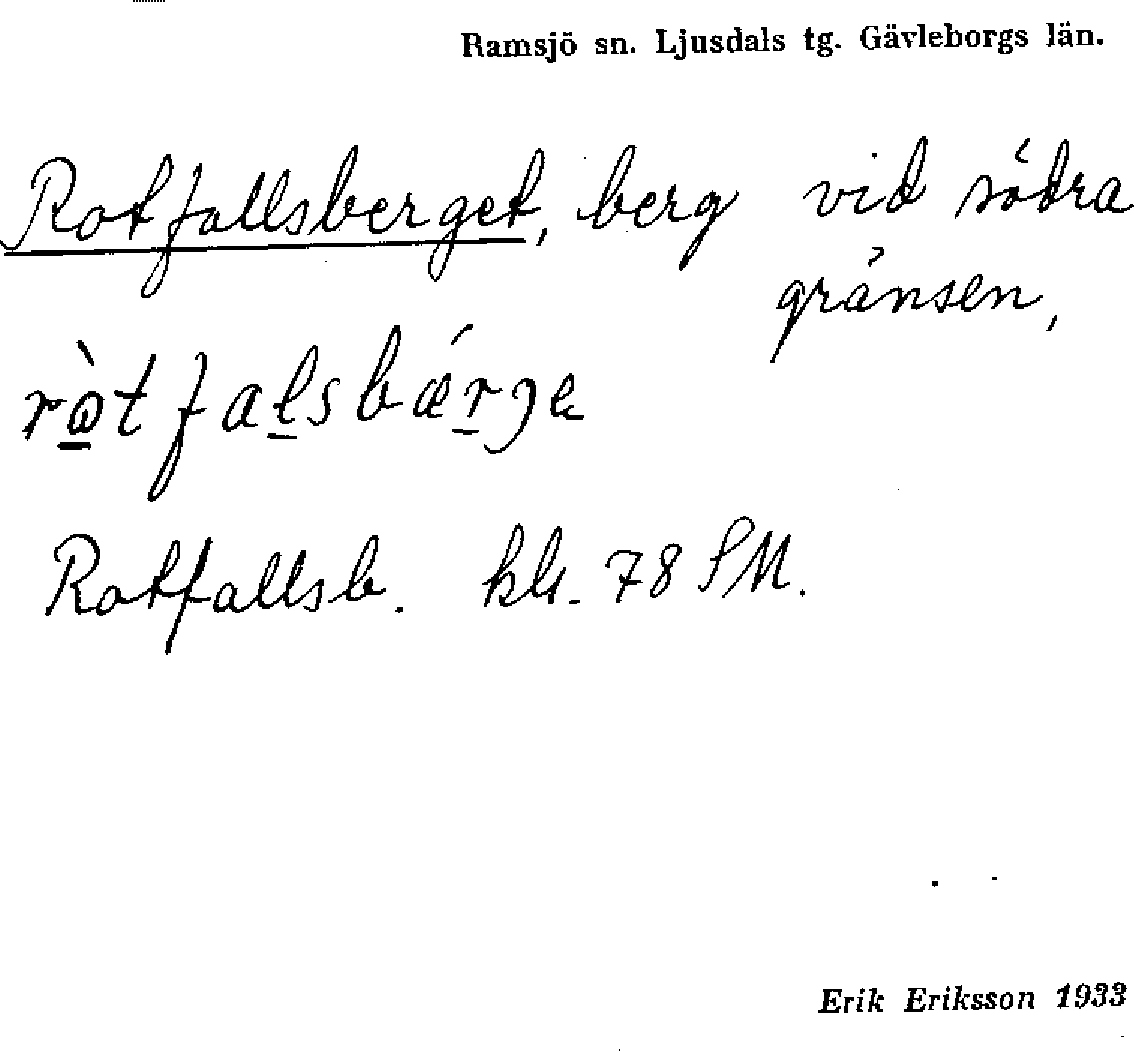 Ramsjö sn. Ljusdals tg. Gävleborgs län.
Rotfallsberget, berg vid södra
gränsen,
ròtfalsbǽrge
Rotfallsb. hk. 78 SM.
Erik Eriksson 1933